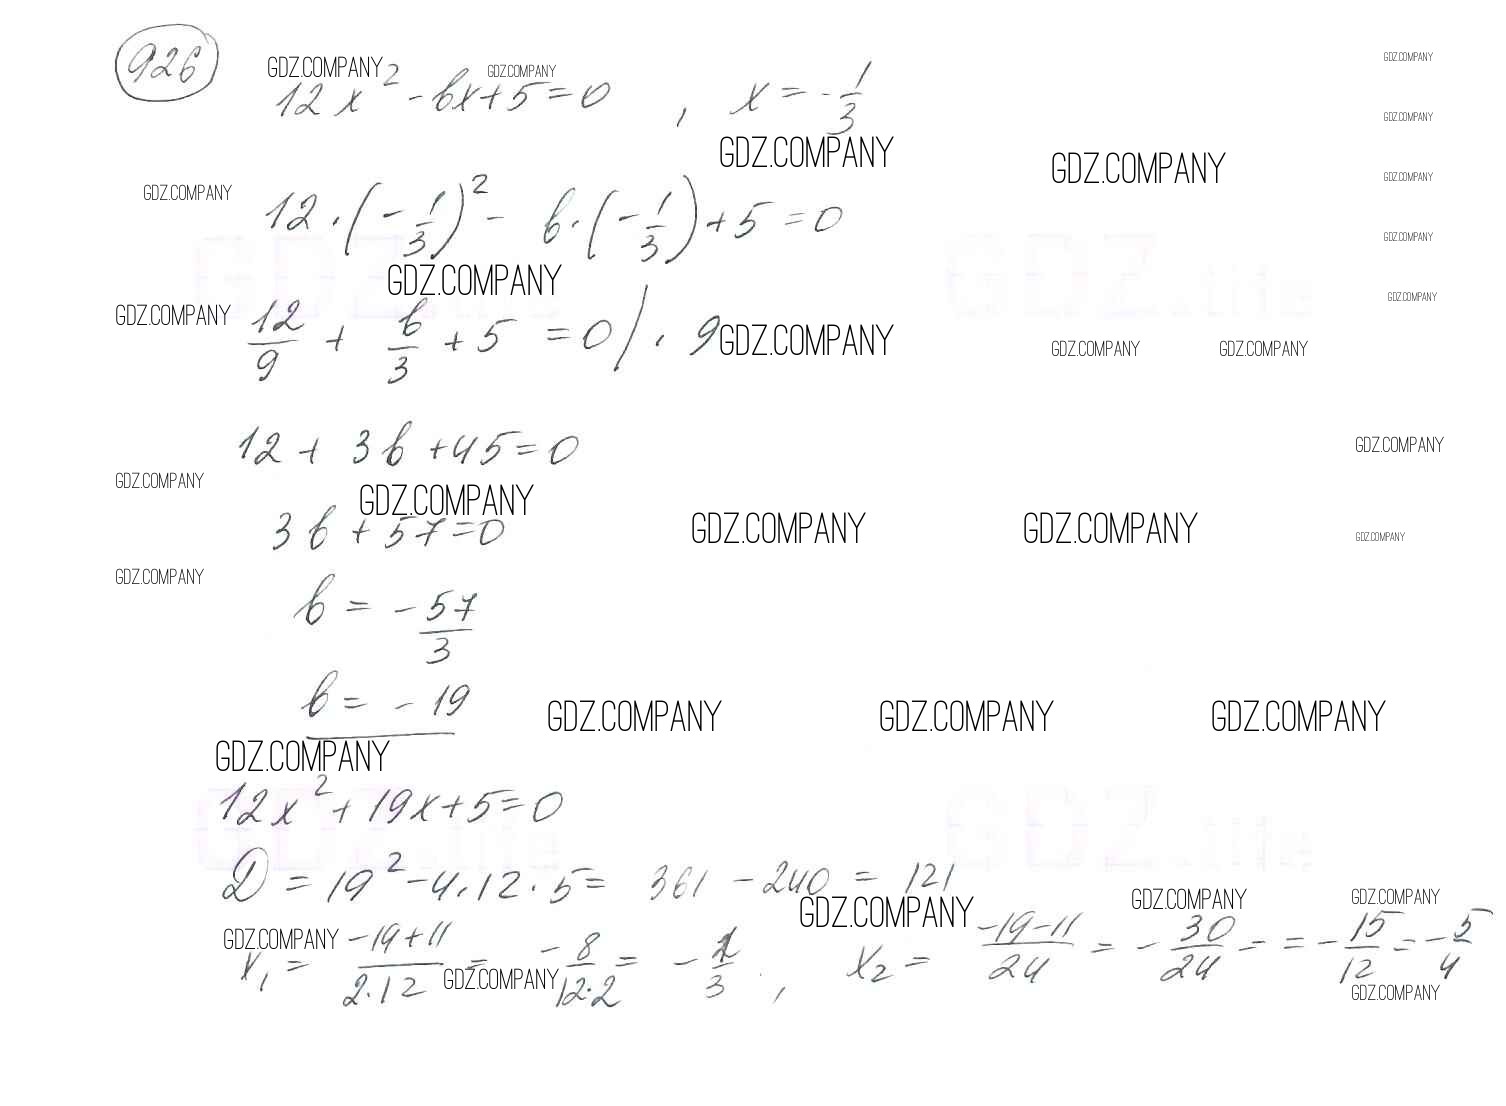 926
GDZ.COMPANY GDZ.COMPANY GDZ.COMPANY
12x² - bx + 5 = 0 , x = -1/3
GDZ.COMPANY
GDZ.COMPANY GDZ.COMPANY
GDZ.COMPANY GDZ.COMPANY
12 · (-1/3)² - b · (-1/3) + 5 = 0
GDZ.COMPANY
GDZ.life GDZ.life
GDZ.COMPANY GDZ.COMPANY
GDZ.COMPANY
12/9 + b/3 + 5 = 0 | · 9
GDZ.COMPANY GDZ.COMPANY GDZ.COMPANY
12 + 3b + 45 = 0
GDZ.COMPANY
GDZ.COMPANY GDZ.COMPANY
3b + 57 = 0
GDZ.COMPANY GDZ.COMPANY GDZ.COMPANY
GDZ.COMPANY
b = -57/3
b = -19
GDZ.COMPANY GDZ.COMPANY GDZ.COMPANY
GDZ.COMPANY
12x² + 19x + 5 = 0
GDZ.life GDZ.life
D = 19² - 4 · 12 · 5 = 361 - 240 = 121
GDZ.COMPANY GDZ.COMPANY GDZ.COMPANY
GDZ.COMPANY
x₁ = -19+11/2·12 = -8/12·2 = -1/3 , x₂ = -19-11/24 = -30/24 = = -15/12 = -5/4
GDZ.COMPANY GDZ.COMPANY